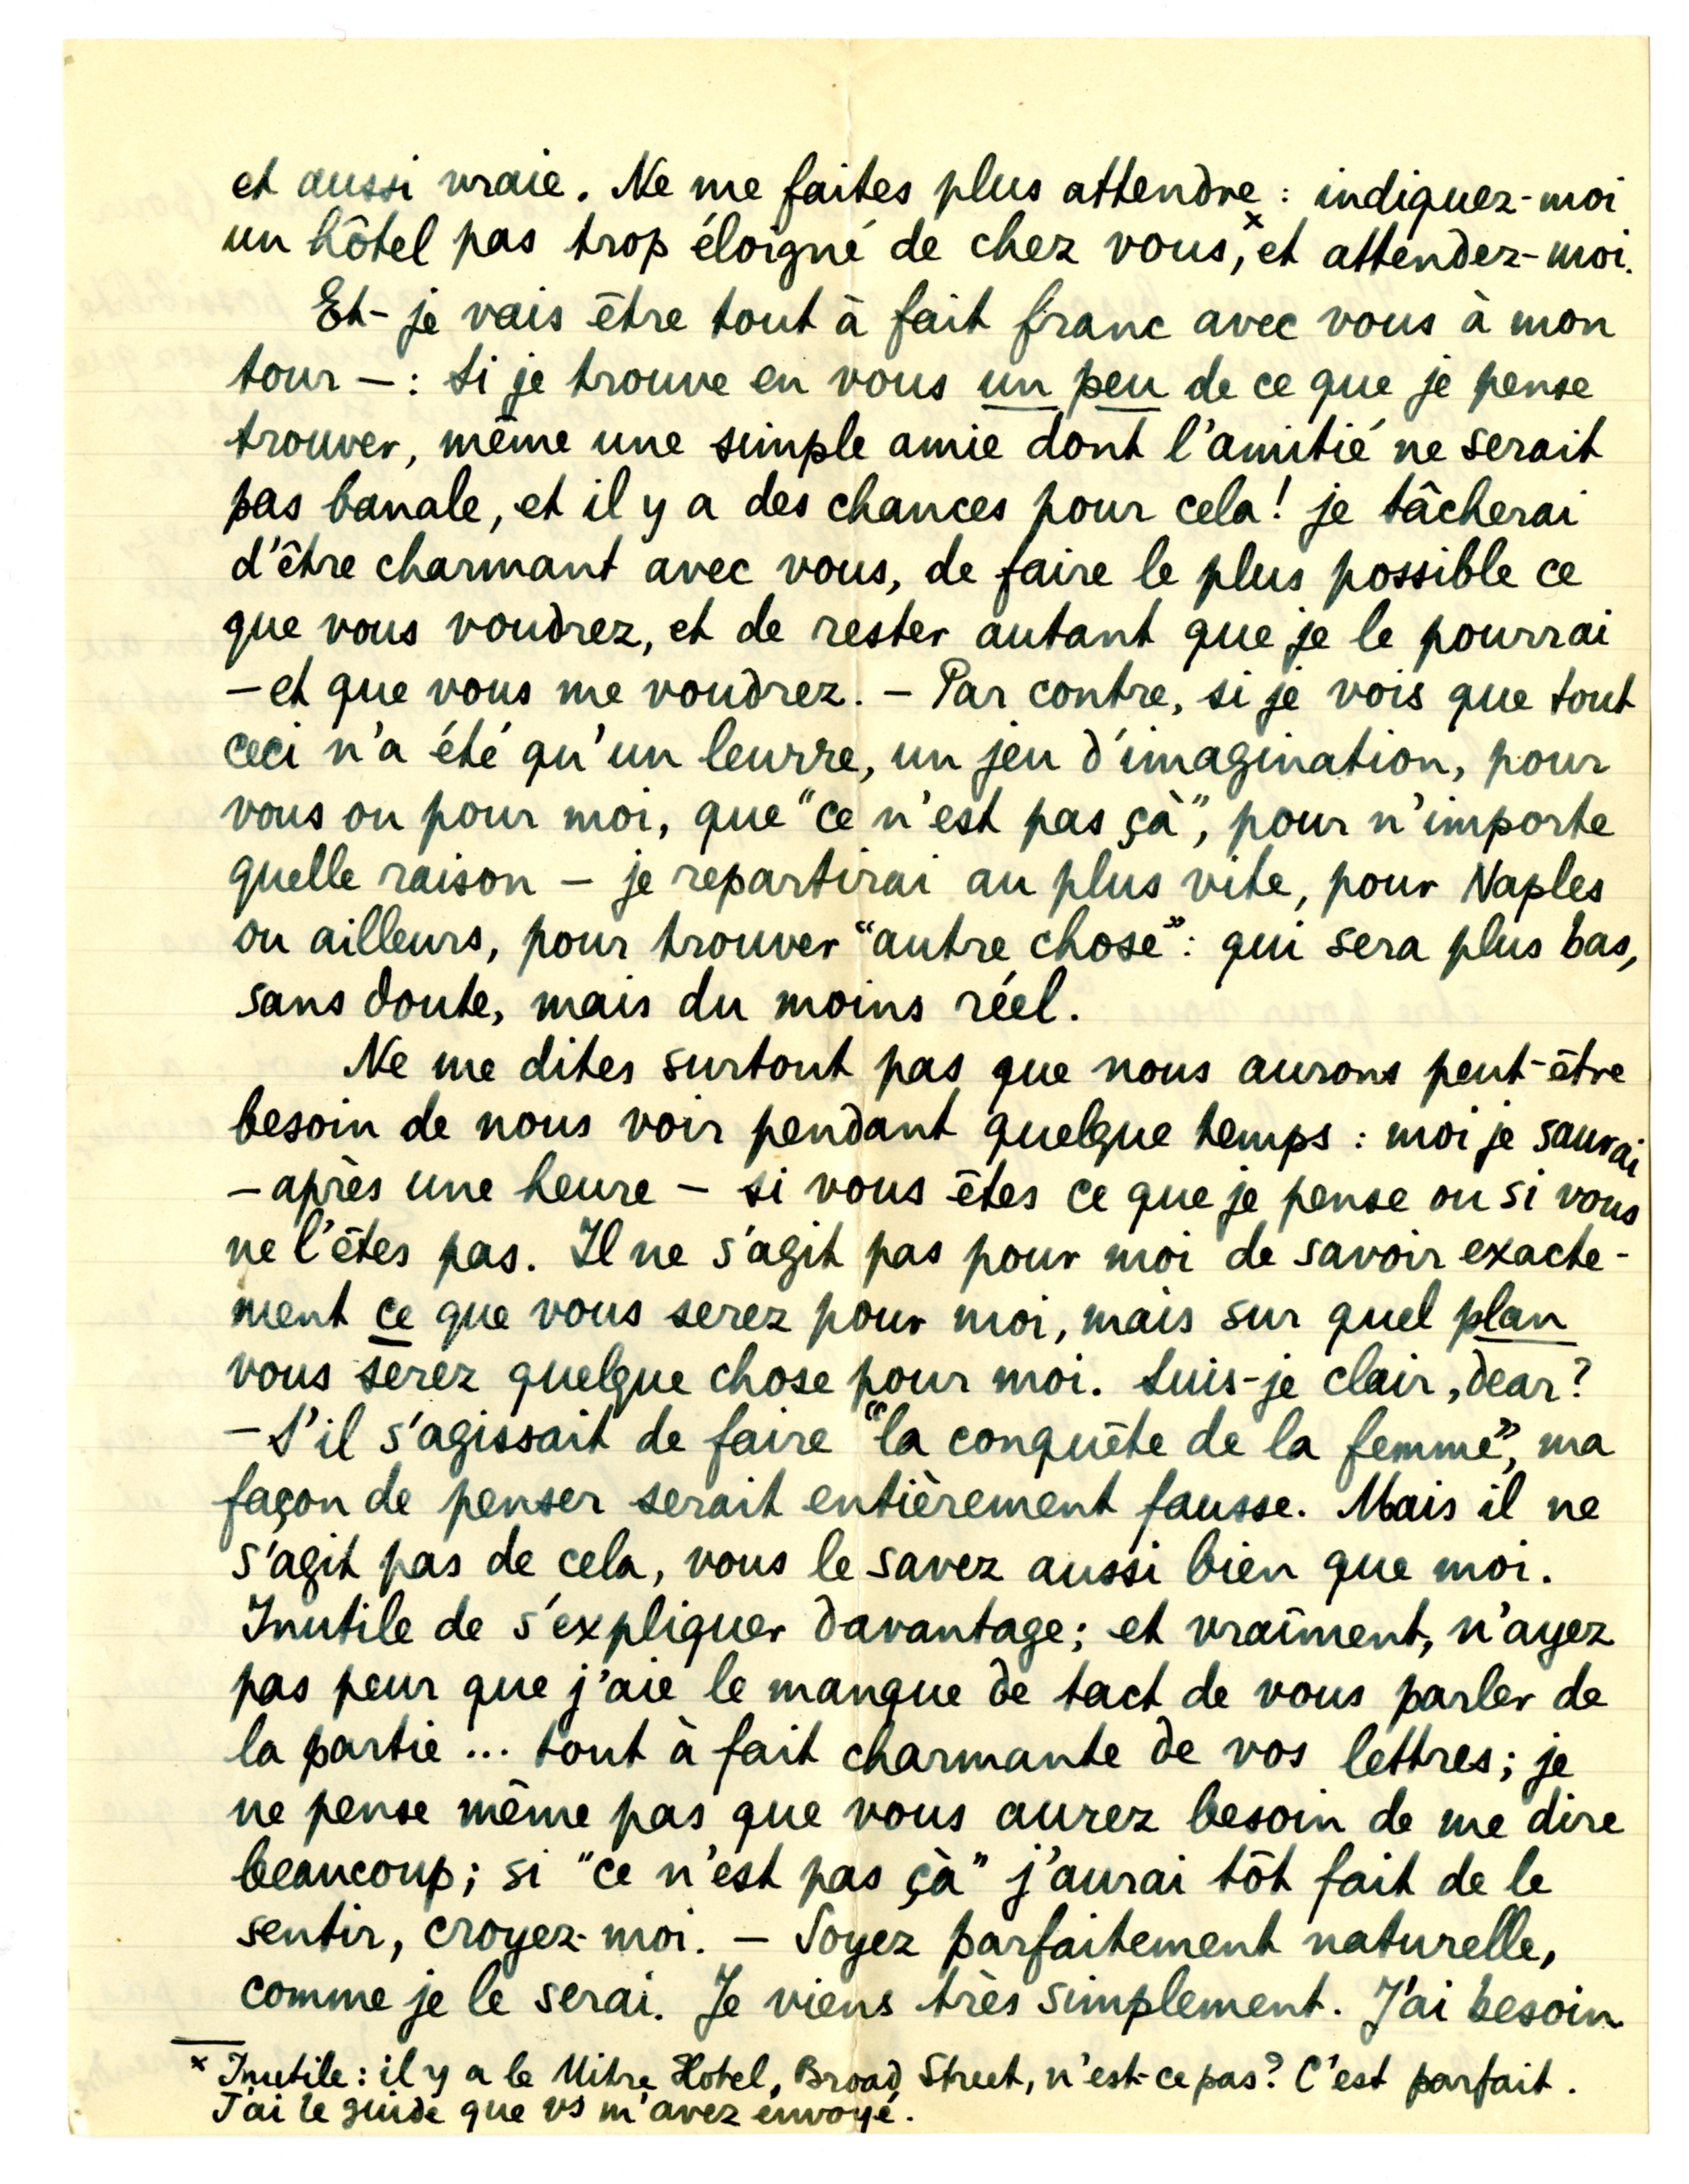 et aussi vraie. Ne me faites plus attendre : indiquez-moi
un hôtel pas trop éloigné de chez vous,ˣ et attendez-moi.
Et - je vais être tout à fait franc avec vous à mon
tour — : si je trouve en vous un peu de ce que je pense
trouver, même une simple amie dont l'amitié ne serait
pas banale, et il y a des chances pour cela ! je tâcherai
d'être charmant avec vous, de faire le plus possible ce
que vous voudrez, et de rester autant que je le pourrai
— et que vous me voudrez. — Par contre, si je vois que tout
ceci n'a été qu'un leurre, un jeu d'imagination, pour
vous ou pour moi, que "ce n'est pas çà", pour n'importe
quelle raison — je repartirai au plus vite, pour Naples
ou ailleurs, pour trouver "autre chose" : qui sera plus bas,
sans doute, mais du moins réel.
Ne me dites surtout pas que nous aurons peut-être
besoin de nous voir pendant quelque temps : moi je saurai
— après une heure — si vous êtes ce que je pense ou si vous
ne l'êtes pas. Il ne s'agit pas pour moi de savoir exacte-
ment ce que vous serez pour moi, mais sur quel plan
vous serez quelque chose pour moi. Suis-je clair, dear ?
— S'il s'agissait de faire "la conquête de la femme", ma
façon de penser serait entièrement fausse. Mais il ne
s'agit pas de cela, vous le savez aussi bien que moi.
Inutile de s'expliquer davantage ; et vraîment, n'ayez
pas peur que j'aie le manque de tact de vous parler de
la partie ... tout à fait charmante de vos lettres ; je
ne pense même pas que vous aurez besoin de me dire
beaucoup ; si "ce n'est pas çà" j'aurai tôt fait de le
sentir, croyez-moi. — Soyez parfaitement naturelle,
comme je le serai. Je viens très simplement. J'ai besoin
ˣ Inutile : il y a le Mitre Hotel, Broad Street, n'est-ce pas ? C'est parfait.
J'ai le guide que vs m'avez envoyé.